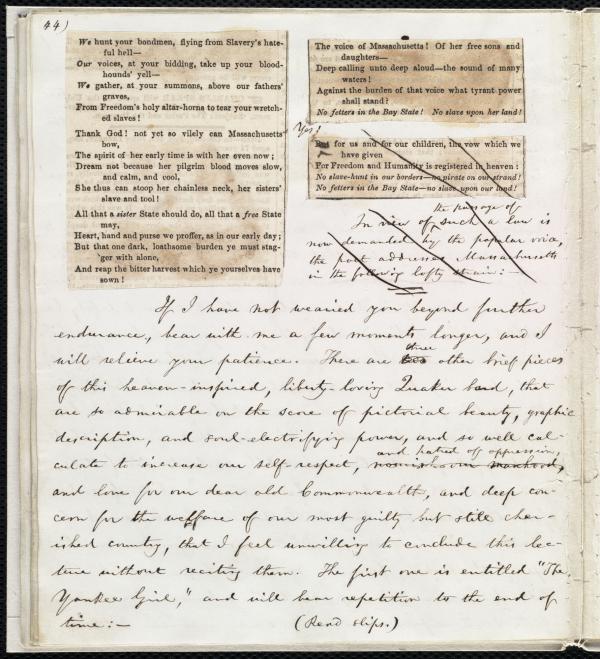 44)
We hunt your bondmen, flying from Slavery's hate-
ful hell—
Our voices, at your bidding, take up your blood-
hounds' yell—
We gather, at your summons, above our fathers'
graves,
From Freedom's holy altar-horns to tear your wretch-
ed slaves!
Thank God! not yet so vilely can Massachusetts
bow,
The spirit of her early time is with her even now;
Dream not because her pilgrim blood moves slow,
and calm, and cool,
She thus can stoop her chainless neck, her sisters'
slave and tool!
All that a sister State should do, all that a free State
may,
Heart, hand and purse we proffer, as in our early day;
But that one dark, loathsome burden ye must stag-
ger with alone,
And reap the bitter harvest which ye yourselves have
sown!
The voice of Massachusetts! Of her free sons and
daughters—
Deep calling unto deep aloud—the sound of many
waters!
Against the burden of that voice what tyrant power
shall stand?
No fetters in the Bay State! No slave upon her land!
Yes!
But for us and for our children, the vow which we
have given
For Freedom and Humanity is registered in heaven:
No slave-hunt in our borders—no pirate on our strand!
No fetters in the Bay State—no slave upon our land!
the passage of
In view of such a law is
now demanded by the popular voice,
the poet addresses Massachusetts
in the following lofty strain:—
If I have not wearied you beyond further
endurance, bear with me a few moments longer, and I
three
will relieve your patience. There are two other brief pieces
of this heaven-inspired, liberty-loving Quaker bard, that
are so admirable on the score of pictorial beauty, graphic
description, and soul-electrifying power, and so well cal-
and hatred of oppression,
culate to increase our self-respect, nourish our manhood,
and love for our dear old Commonwealth, and deep con-
cern for the welfare of our most guilty but still cher-
ished country, that I feel unwilling to conclude this lec-
ture without reciting them. The first one is entitled "The
Yankee Girl," and will bear repetition to the end of
time:— (Read slips.)